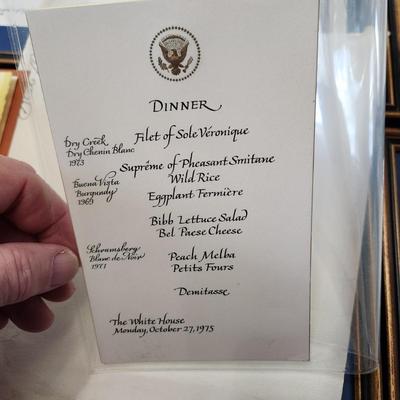 DINNER
Filet of Sole Véronique
Dry Creek
Dry Chenin Blanc
1973
Suprême of Pheasant Smitane
Wild Rice
Eggplant Fermière
Buena Vista
Burgundy
1969
Bibb Lettuce Salad
Bel Paese Cheese
Schramsberg
Blanc de Noir
1971
Peach Melba
Petits Fours
Demitasse
The White House
Monday, October 27, 1975